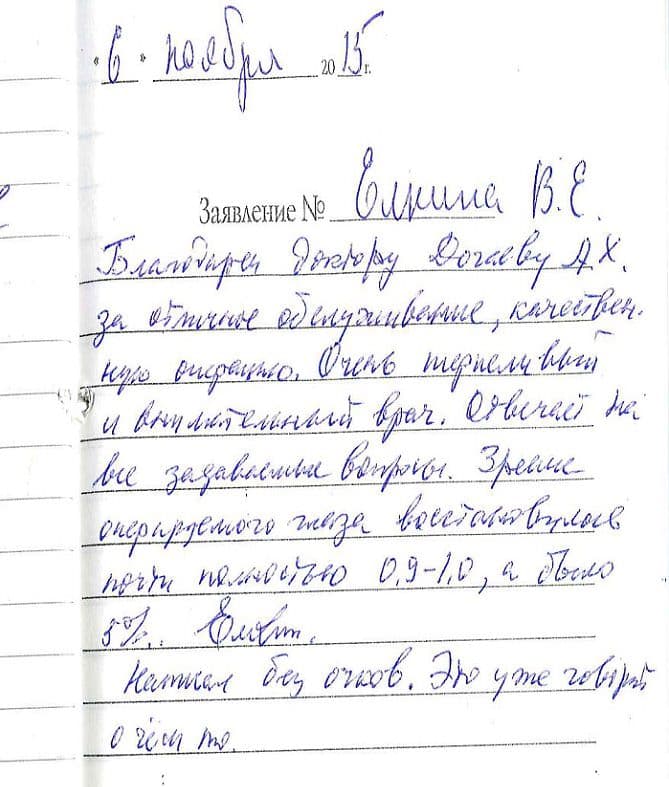 "6" ноября 2015 г.
Заявление № В.Е.
Благодарен доктору Дочаеву А.Х.
за отличное обслуживание, качествен-
ную операцию. Очень терпеливый
и внимательный врач. Отвечает на
все задаваемые вопросы. Зрение
оперируемого глаза восстановилось
почти полностью 0,9-1,0, а было
5%.
Написал без очков. Это уже говорит
о чём то.